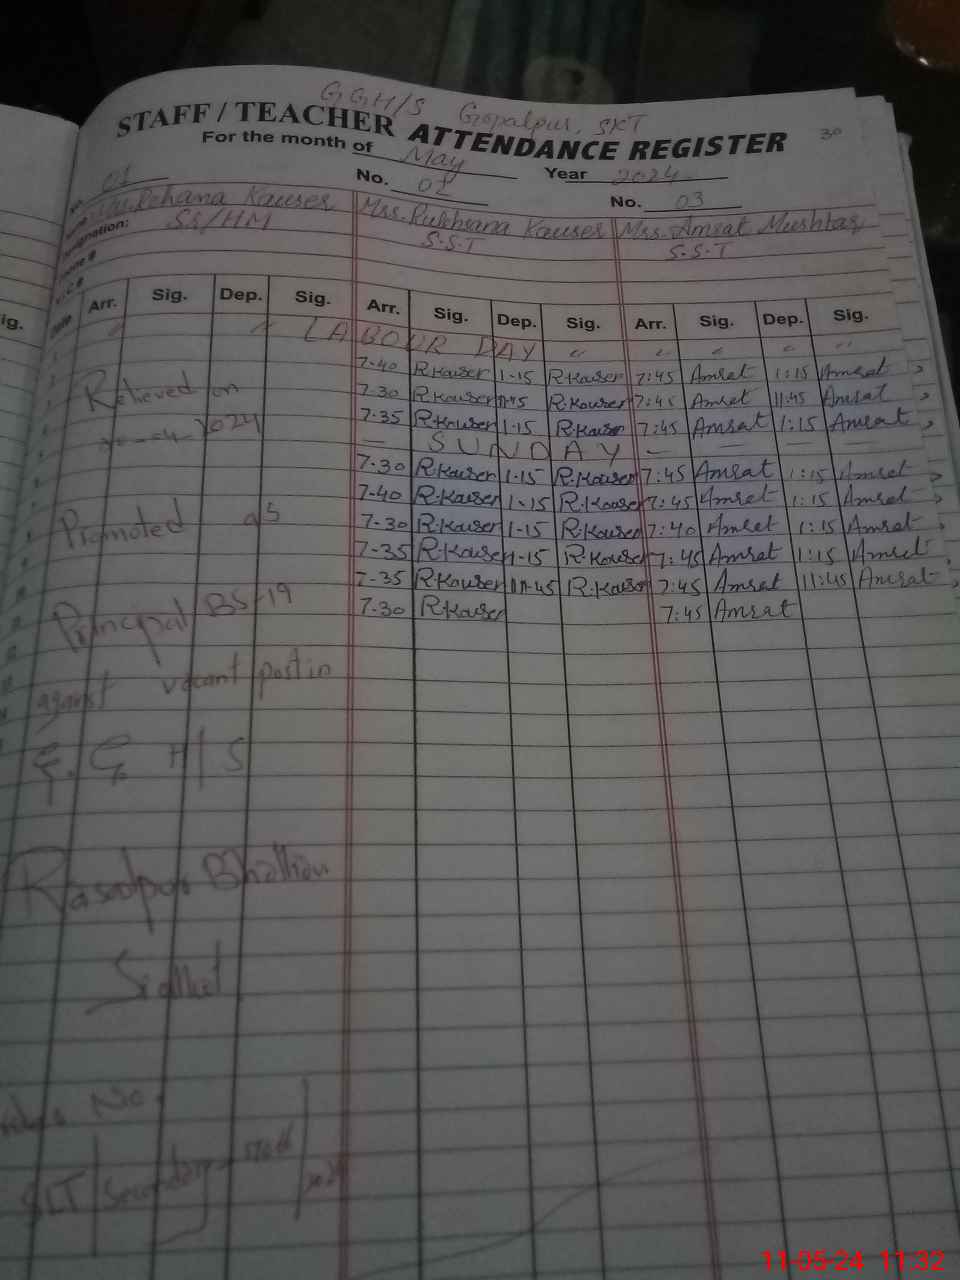 GGH/S Gopalpur, SKT
STAFF / TEACHER ATTENDANCE REGISTER 30
For the month of May Year 2024
No. 01 No. 02 No. 03
Rehana Kauser Mrs. Rukhsana Kauser Mrs. Amrat Mushtaq
SS/HM S.S.T S.S.T
Date Arr. Sig. Dep. Sig. Arr. Sig. Dep. Sig. Arr. Sig. Dep. Sig.
LABOUR DAY
7-40 R.Kauser 1-15 R.Kauser 7:45 Amrat 1:15 Amrat
Relieved on 7-30 R.Kauser 11-45 R.Kauser 7:45 Amrat 11:45 Amrat
2024 7-35 R.Kauser 1-15 R.Kauser 7:45 Amrat 1:15 Amrat
— SUNDAY —
7-30 R.Kauser 1-15 R.Kauser 7:45 Amrat 1:15 Amrat
7-40 R.Kauser 1-15 R.Kauser 7:45 Amrat 1:15 Amrat
Promoted as 7-30 R.Kauser 1-15 R.Kauser 7:40 Amrat 1:15 Amrat
7-35 R.Kauser 1-15 R.Kauser 7:45 Amrat 1:15 Amrat
7-35 R.Kauser 11-45 R.Kauser 7:45 Amrat 11:45 Amrat
Principal BS-19 7-30 R.Kauser 7:45 Amrat
against vacant post in
G.G H/S
Rasoolpur Bhallian
Sialkot
No.
SLT/Secondary
11-05-24 11:32